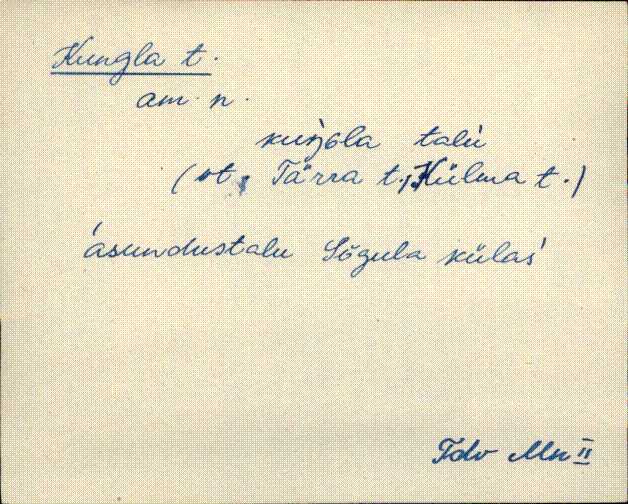 Kungla t.
am. n.
kuŋ̀gla talu
(vt. Tärra t., Külma t.)
'asundustalu Sõgula külas'
Tdv Mn II